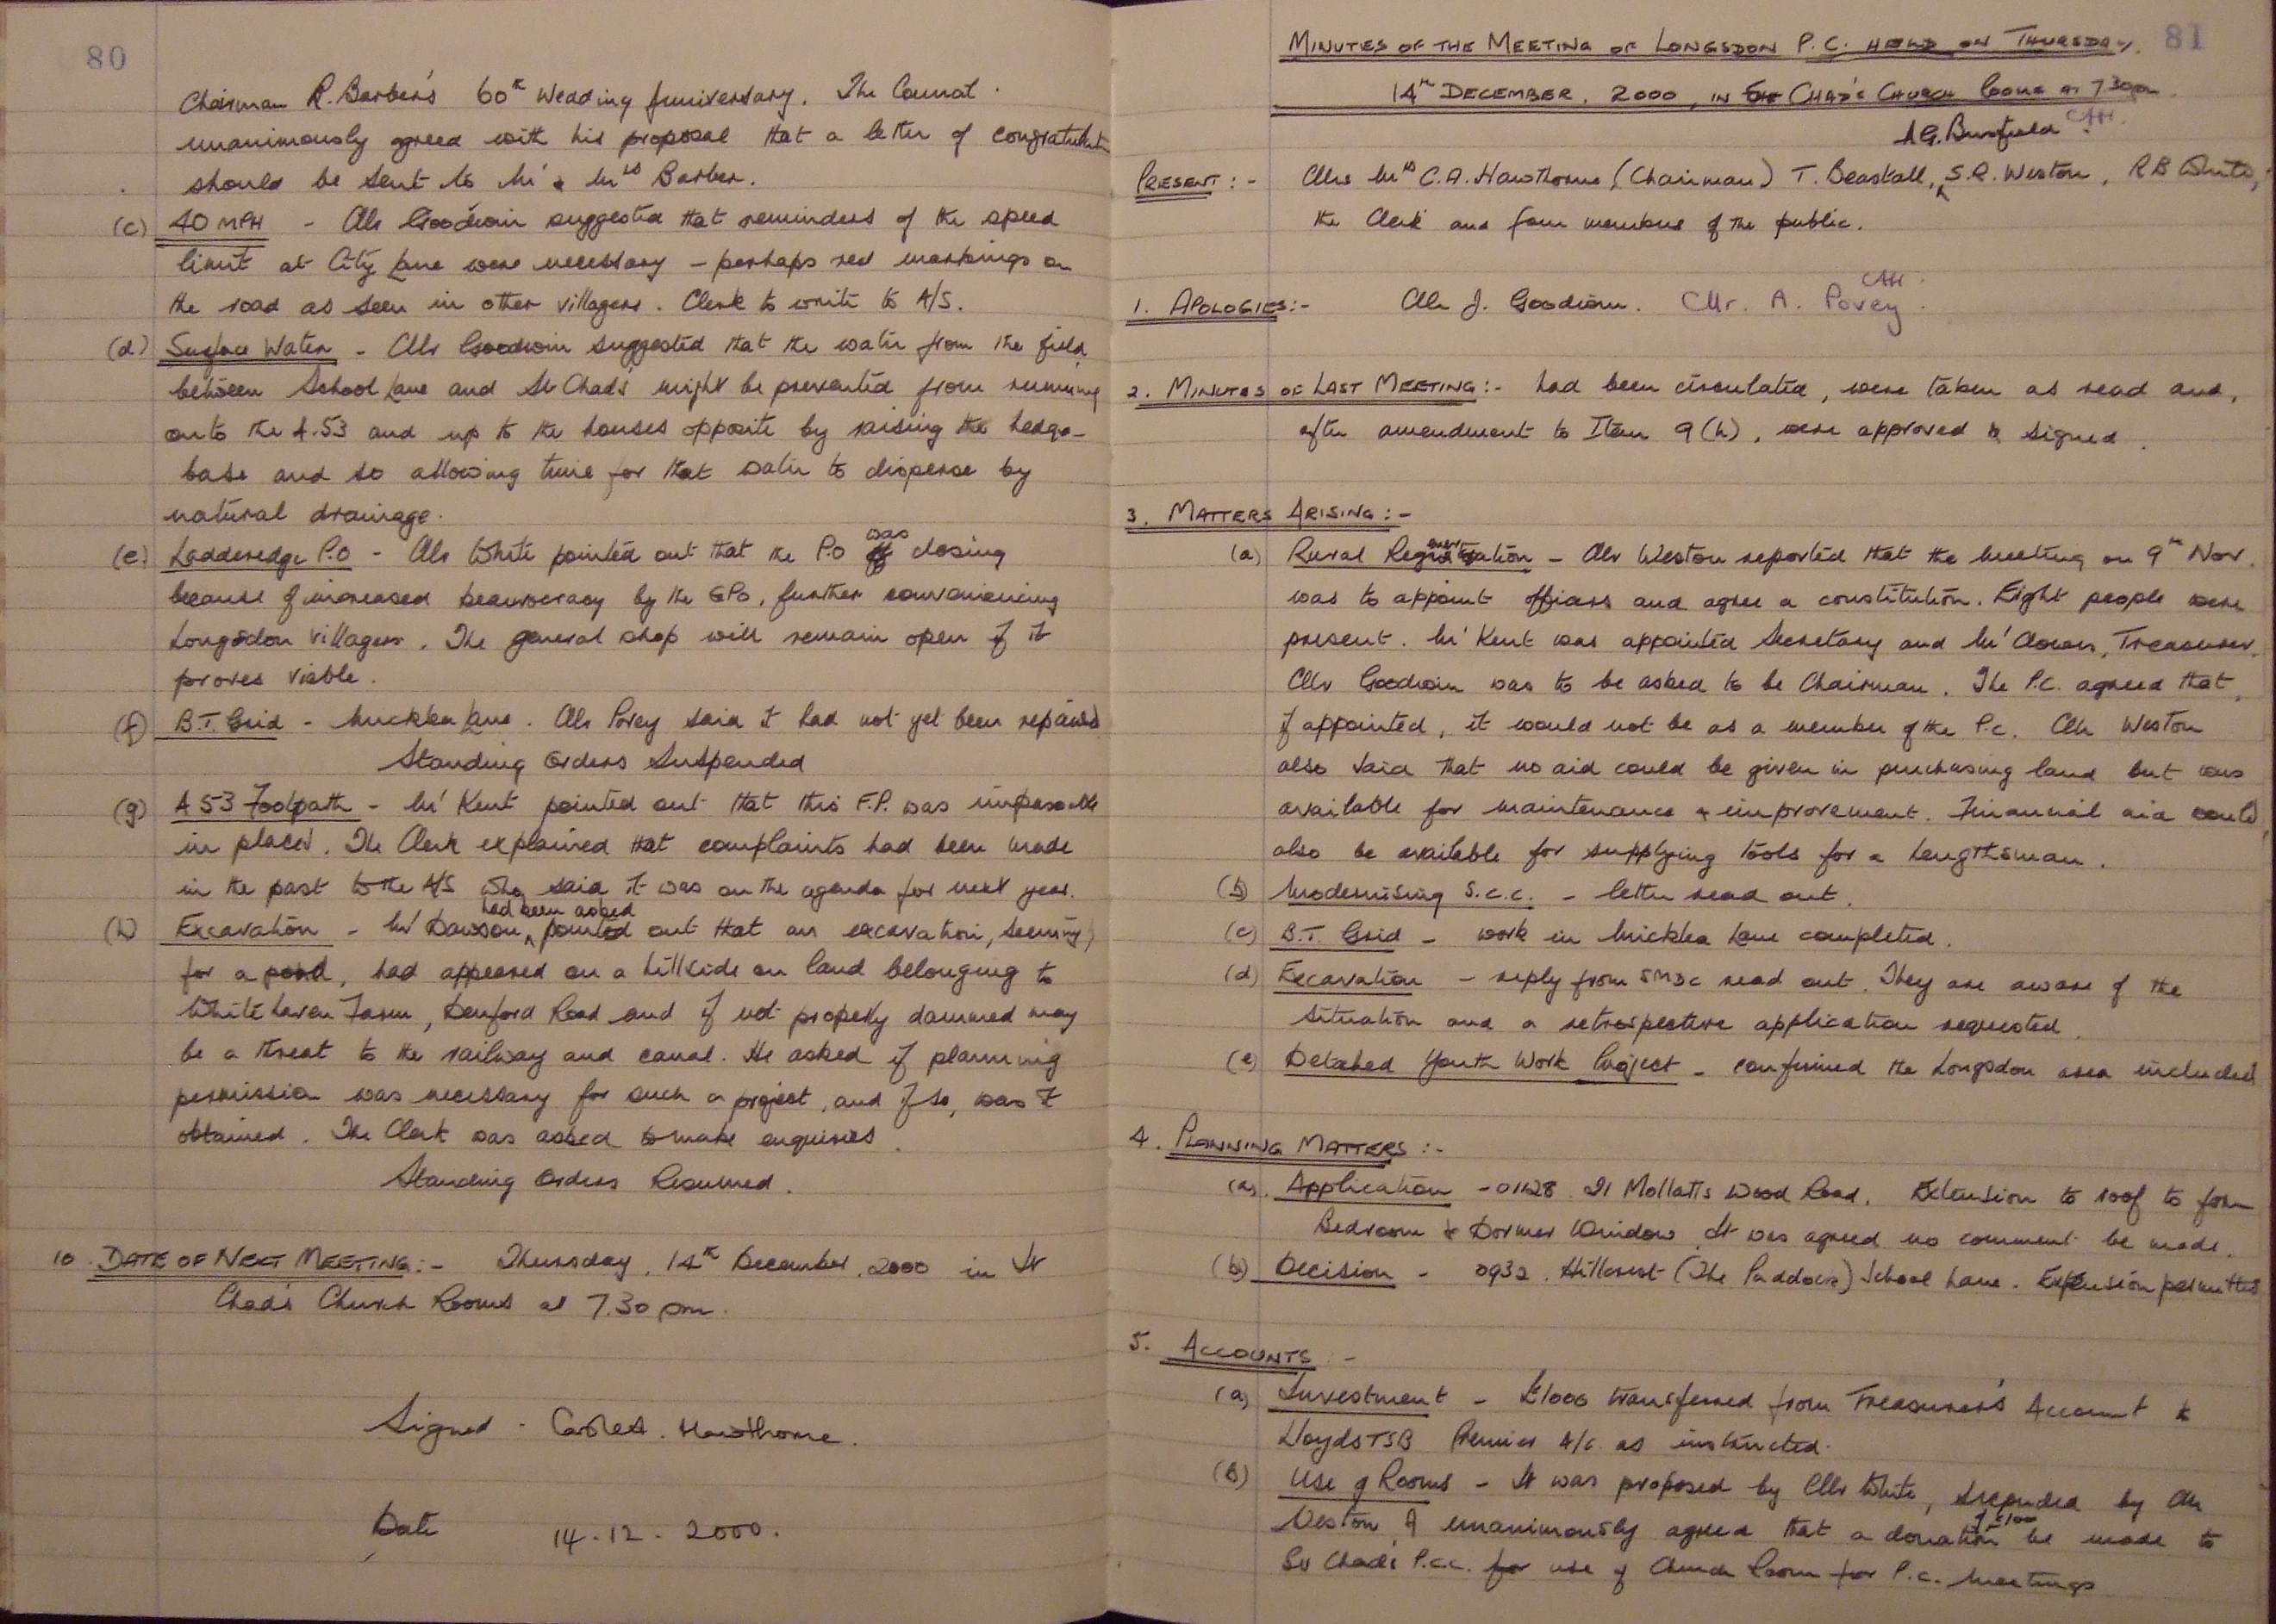 80
Chairman R. Barber's 60th Wedding Anniversary. The Council
unanimously agreed with his proposal that a letter of congratulation
should be sent to Mr & Mrs Barber.
(c) 40 MPH - Cllr Goodwin suggested that reminders of the speed
limit at City Lane were necessary - perhaps red markings on
the road as seen in other villages. Clerk to write to A/S.
(d) Surface Water - Cllr Goodwin suggested that the water from the field
between School Lane and St Chad's might be prevented from running
onto the A.53 and up to the houses opposite by raising the hedge-
base and so allowing time for that water to disperse by
natural drainage.
(e) Ladderedge P.O - Cllr White pointed out that the P.O was closing
because of increased beaurocracy by the GPO, further
Longsdon villagers. The general shop will remain open if it
proves viable.
(f) B.T. Grid - Micklea Lane. Cllr Povey said it had not yet been repaired
Standing Orders Suspended
(g) A53 Footpath - Mr Kent pointed out that this F.P. was impassable
in places. The Clerk explained that complaints had been made
in the past to the A/S who said it was on the agenda for next year.
(h) Excavation - Mr Dawson had been asked pointed out that an excavation, seemingly
for a pond, had appeared on a hillside on land belonging to
Whitehaven Farm, Denford Road and if not properly dammed may
be a threat to the railway and canal. He asked if planning
permission was necessary for such a project, and if so, was it
obtained. The Clerk was asked to make enquiries.
Standing Orders Resumed.
10. DATE OF NEXT MEETING:- Thursday, 14th December, 2000 in St
Chad's Church Rooms at 7.30 pm.
Signed - Hawthorne.
Date 14.12.2000.
81
MINUTES OF THE MEETING OF LONGSDON P.C. HELD ON THURSDAY
14th DECEMBER, 2000, IN ST CHAD'S CHURCH ROOMS AT 7.30pm
A.G. CAH.
PRESENT:- Cllrs Mrs C.A. Hawthorne, (Chairman) T. Beaskall, S.R. Weston, R B White,
the Clerk and four members of the public.
CAH.
1. APOLOGIES:- Cllr J. Goodwin. Cllr. A. Povey.
2. MINUTES OF LAST MEETING:- had been circulated, were taken as read and,
after amendment to Item 9(h), were approved & signed.
3. MATTERS ARISING:-
(a) Rural Regeneration - Cllr Weston reported that the meeting on 9th Nov.
was to appoint officers and agree a constitution. Eight people were
present. Mr Kent was appointed Secretary and Mr Clowes, Treasurer.
Cllr Goodwin was to be asked to be Chairman. The P.C. agreed that,
if appointed, it would not be as a member of the P.C. Cllr Weston
also said that no aid could be given in purchasing land but was
available for maintenance & improvement. Financial aid could
also be available for supplying tools for a Lengthsman.
(b) Modernising S.C.C. - letter read out.
(c) B.T. Grid - work in Micklea Lane completed.
(d) Excavation - reply from SMDC read out. They are aware of the
situation and a retrospective application requested.
(e) Detached Youth Work Project - confirmed the Longsdon area included
4. PLANNING MATTERS:-
(a) Application - 01128 21 Mollatts Wood Road. Extension to roof to form
Bedroom & Dormer Window. It was agreed no comment be made.
(b) Decision - 0932. Hillcrest (The Paddock) School Lane. Extension permitted
5. ACCOUNTS:-
(a) Investment - £1000 transferred from Treasurer's Account to
Lloyds TSB Premier A/c as instructed.
(b) Use of Rooms - It was proposed by Cllr White, seconded by Cllr
Weston & unanimously agreed that a donation of £100 be made to
St Chad's P.C.C. for use of Church Room for P.C. meetings